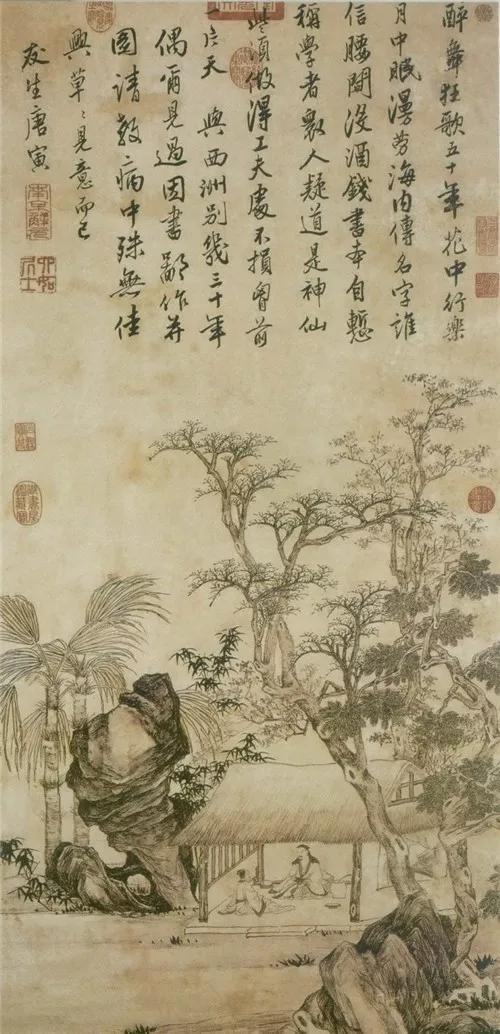 醉舞狂歌五十年花中行樂
月中眠漫勞海內傳名字誰
信腰間沒酒錢書本自慙
稱學者眾人疑道是神仙
些須做得工夫處不損胸前
一片天 與西洲別幾三十年
偶爾見過因書鄙作并
圖請教病中殊無佳
興草〻見意而已
友生唐寅
南京解元
六如居士